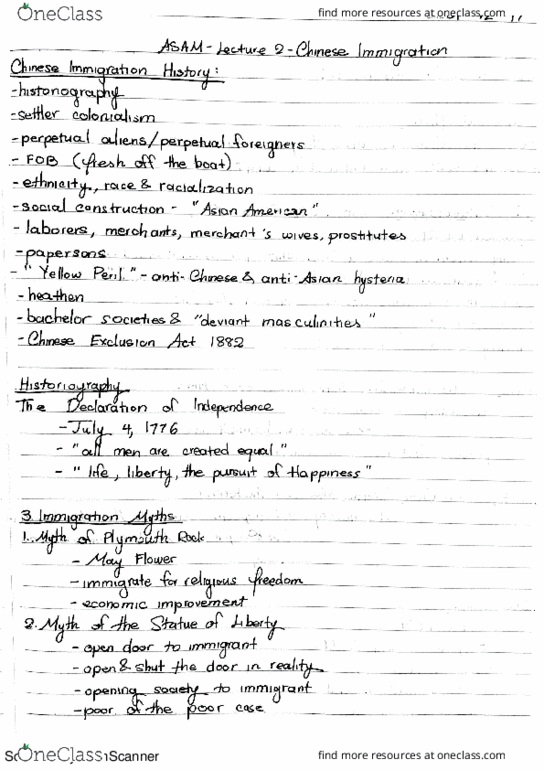 OneClass
find more resources at oneclass.com
ASAM - Lecture 2 - Chinese Immigration
Chinese Immigration History:
- histonography
- settler colonialism
- perpetual aliens/perpetual foreigners
- FOB (fresh off the boat)
- ethnicity, race & racialization
- social construction - "Asian American"
- laborers, merchants, merchant's wives, prostitutes
- papersons
- "Yellow Peril" - anti-Chinese & anti-Asian hysteria
- heathen
- bachelor societies & "deviant masculinities"
- Chinese Exclusion Act 1882
Historiography
The Declaration of Independence
- July 4, 1776
- "all men are created equal"
- "life, liberty, the pursuit of Happiness"
3 Immigration Myths
1. Myth of Plymouth Rock
- May Flower
- immigrate for religious freedom
- economic improvement
2. Myth of the Statue of Liberty
- open door to immigrant
- open & shut the door in reality
- opening society to immigrant
- poor of the poor case
OneClass
Scanner
find more resources at oneclass.com